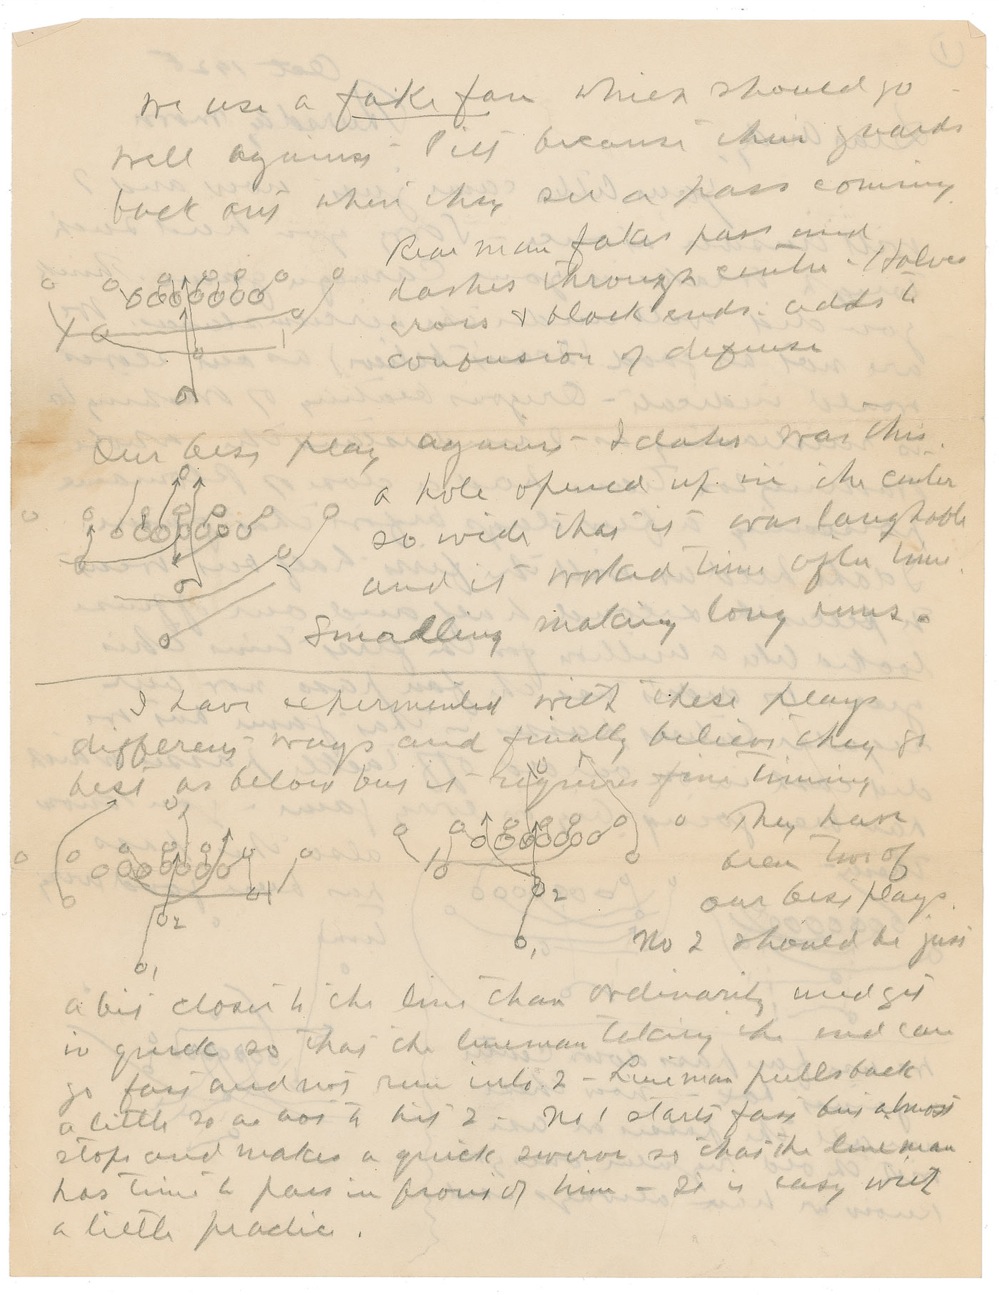 We use a fake pass which should go
well against Pitt because their guards
back out when they see a pass coming.
Rear man fakes pass and
dashes through centre. Halves
cross & block ends. adds to
confusion of defense
Our best play against Idaho was this.
a hole opened up in the center
so wide that it was laughable
and it worked time after time.
Smalling making long runs.
I have experimented with these plays
different ways and finally believe they go
best as below but it requires fine timing
They have
been two of
our best plays.
No 2 should be just
a bit closer to the line than ordinarily and get
in quick so that the lineman taking the end can
go fast and not run into 2 - Lineman pulls back
a little so as not to hit 2 - No 1 starts fast but almost
stops and makes a quick swerve so that the lineman
has time to pass in front of him - It is easy with
a little practice.